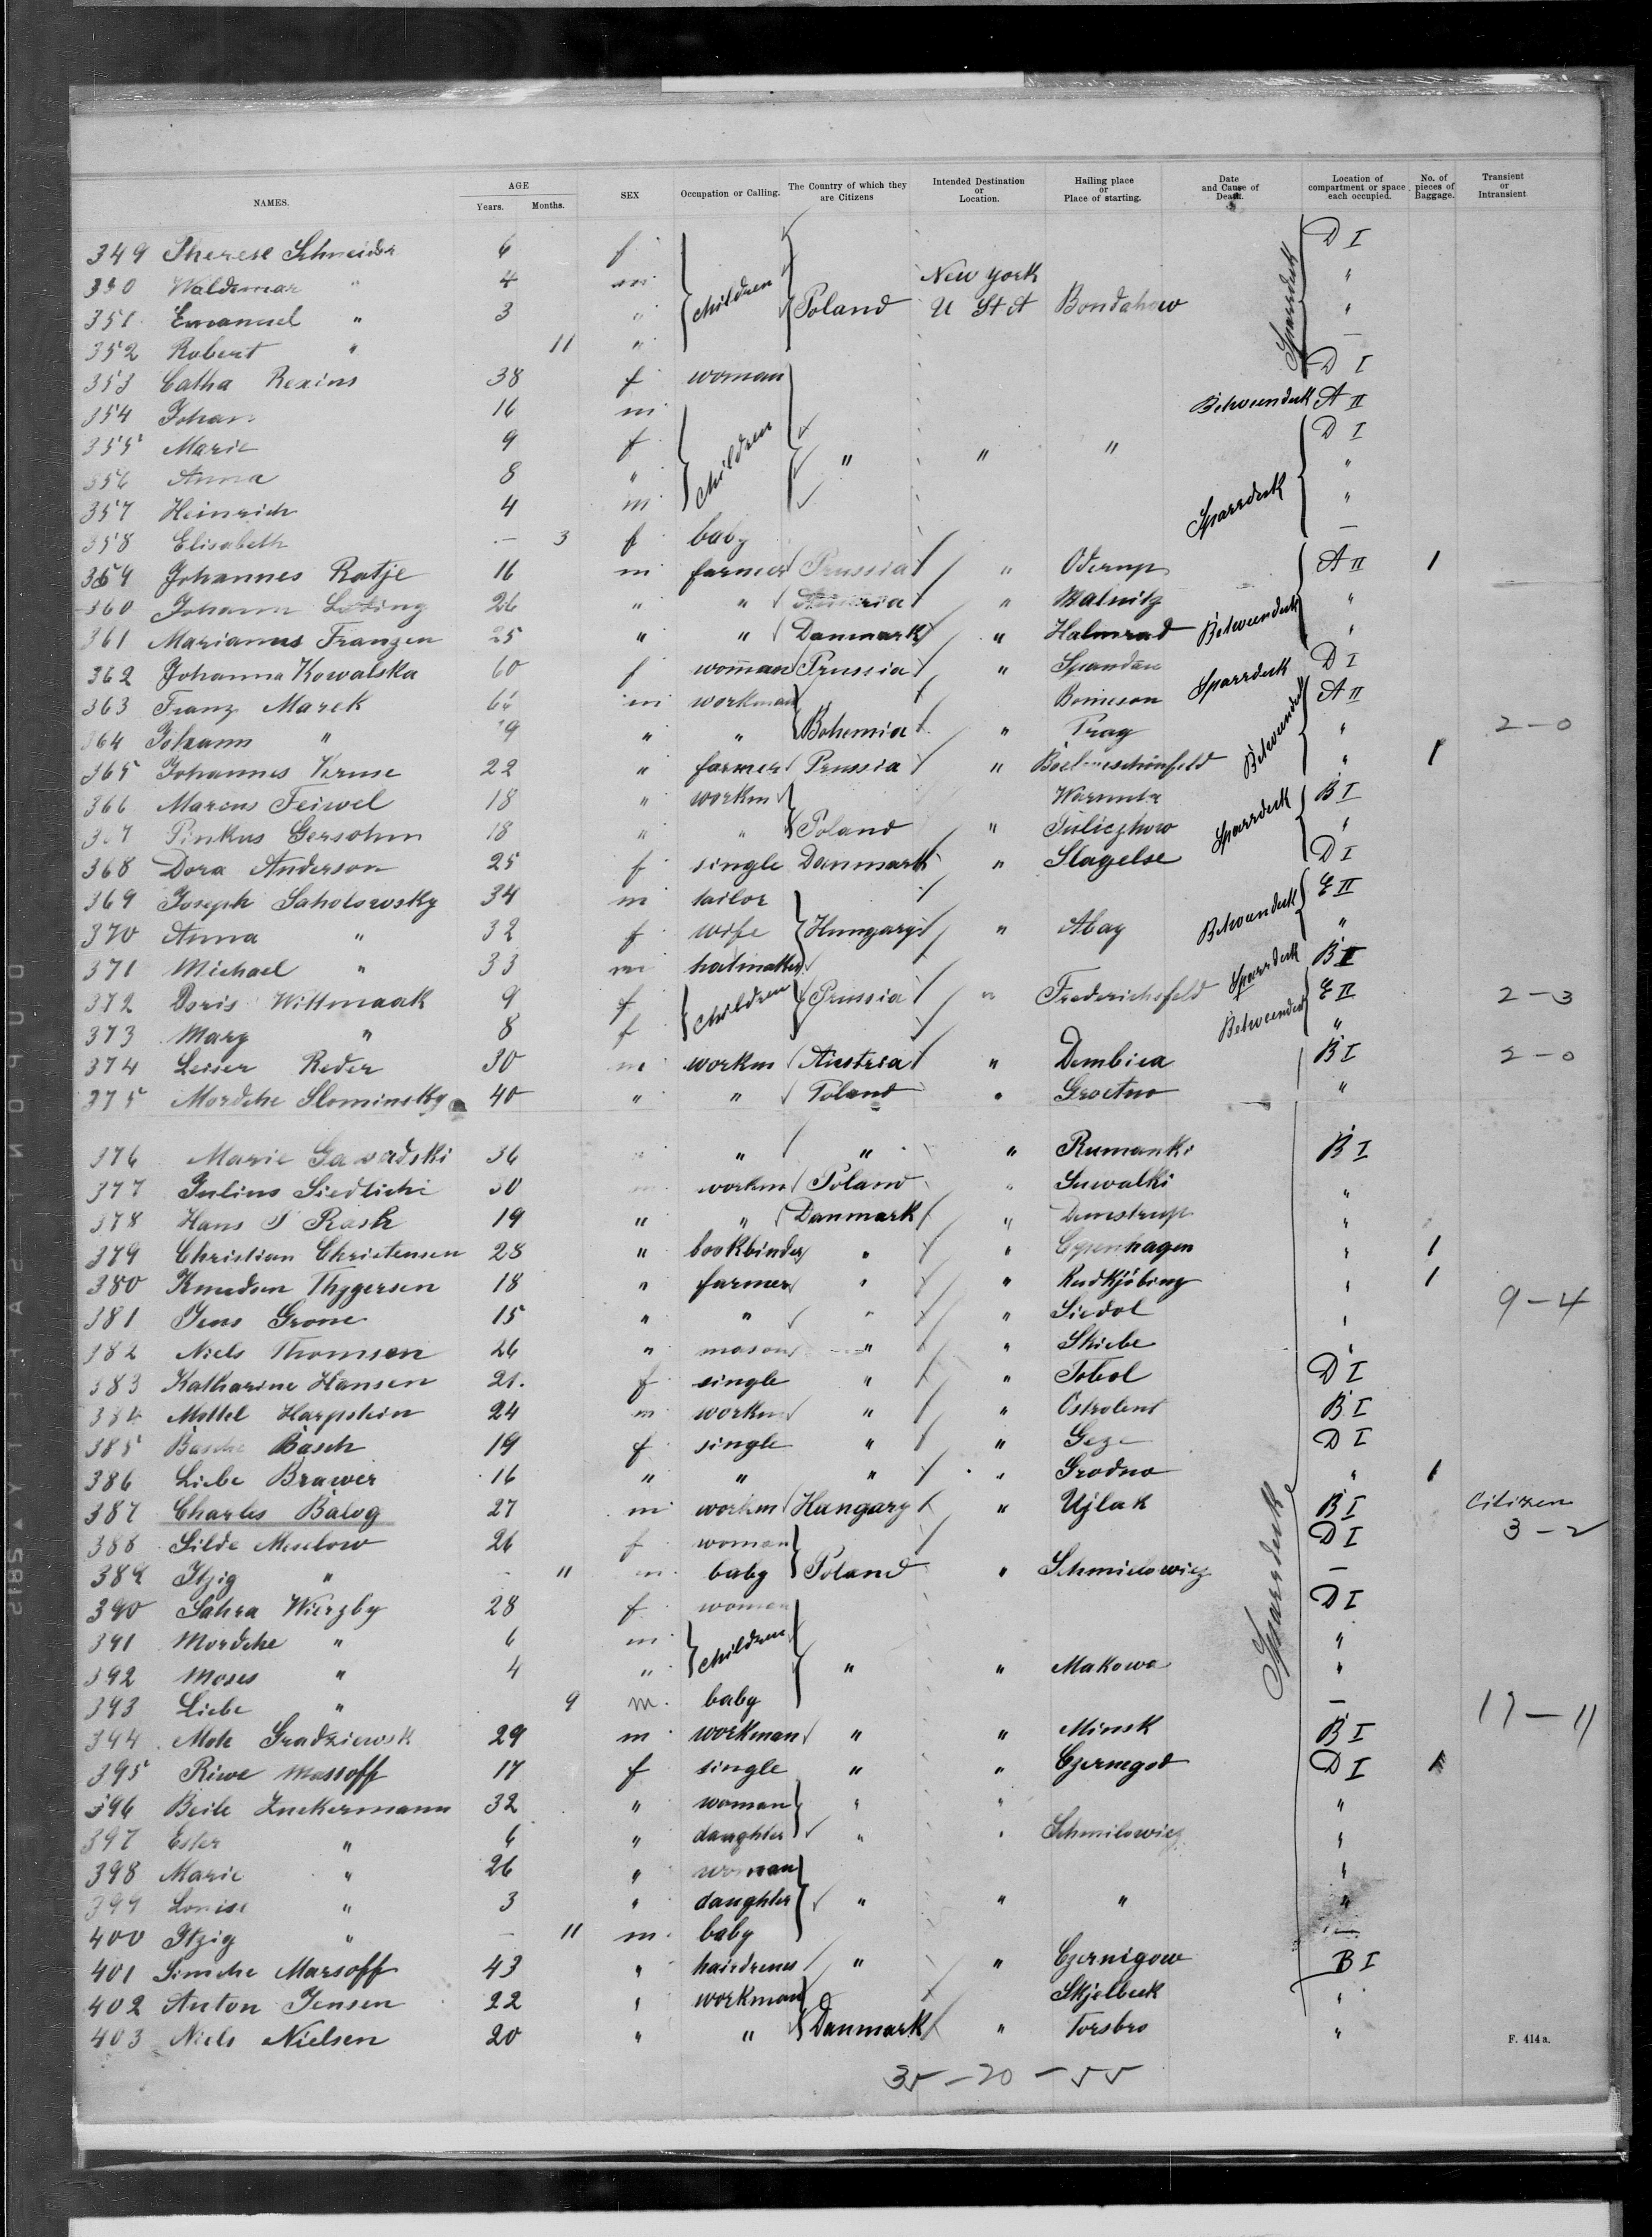 NAMES. AGE Years. Months. SEX Occupation or Calling. The Country of which they are Citizens Intended Destination or Location. Hailing place or Place of starting. Date and Cause of Death. Location of compartment or space each occupied. No. of pieces of Baggage. Transient or Intransient
349 Therese Schneider 6 f D I
350 Waldemar " 4 m children New York "
351 Emanuel " 3 " Poland U St A Bondahow Sparrdeck "
352 Robert " 11 " —
353 Catha Rexins 38 f woman D I
354 Johan 16 m Betweendeck A II
355 Marie 9 f children " " " D I
356 Anna 8 " "
357 Heinrich 4 m Sparrdeck "
358 Elisabeth — 3 f baby —
359 Johannes Ratje 16 m farmer Prussia " Oderup A II 1
360 Johann 26 " " Austria " Walnitz "
361 Marianus Franzen 25 " " Danmark " Halmrad Betweendeck "
362 Johanna Kowalska 60 f woman Prussia " Spandau Sparrdeck D I
363 Franz Marek m workman A II
364 Johann " 19 " " Bohemia " Prag Betweendeck " 2-0
365 Johannes 22 " farmer Prussia " " 1
366 Marcus Feiwel 18 " workm B I
367 Pinkus Gersohm 18 " " Poland " Juliczhow Sparrdeck "
368 Dora Anderson 25 f single Danmark " Slagelse D I
369 Joseph Saholowsky 34 m tailor E II
370 Anna " 32 f wife Hungary " Abay Betweendeck "
371 Michael " 33 m hatmaker Sparrdeck B I
372 Doris Wittmaak 9 f children Prussia " Frederichsfeld E II 2-3
373 Marg " 8 f Betweendeck "
374 Leiser Reder 30 m workm Austria " Dembica B I 2-0
375 Mordche Slominsky 40 " " Poland " Groetno "
376 Marie Gawadski 36 " " " " Rumanki B I
377 Julius Siedlichi 30 m workm Poland " Suwalki "
378 Hans P Rash 19 " " Danmark " "
379 Christian Christensen 28 " bookbinder " " Copenhagen " 1
380 Knudson Thygersen 18 " farmer " " Rudkjöbing " 1
381 Jens Grone 15 " " " " Siedol " 9-4
382 Niels Thomsen 26 " mason " " Skiebe "
383 Katharine Hansen 21. f single " " Tobol D I
384 Mottel Harpstein 24 m workm " " Ostrolent B I
385 Basche Basch 19 f single " " D I
386 Liebe Brawer 16 " " " " Grodno " 1
387 Charles Balog 27 m workm Hungary " Ujlak Sparrdeck B I Citizen
388 Silde Meselow 26 f woman D I 3-2
389 Itzig " — 11 m baby Poland " Schmielowicz —
390 Sahra Wierzby 28 f woman D I
391 Mordche " 6 m children "
392 Moses " 4 " " " Makowa "
393 Liebe " 9 m. baby — 17-11
394 Mok Gradziewsk 29 m workman " " Minsk B I
395 Riwe Massoff 17 f single " " Czernegod D I 1
396 Beile Zuckermann 32 " woman " " "
397 Ester " 6 " daughter " " Schmilowicz "
398 Marie " 26 " woman "
399 Louise " 3 " daughter " " " "
400 Itzig " — 11 m. baby —
401 Simche Marsoff 43 " " " Czernigow B I
402 Anton Jensen 22 " workman Skjelbeck "
403 Niels Nielsen 20 " " Danmark " Torsbro "
F. 414 a.
35-20-55